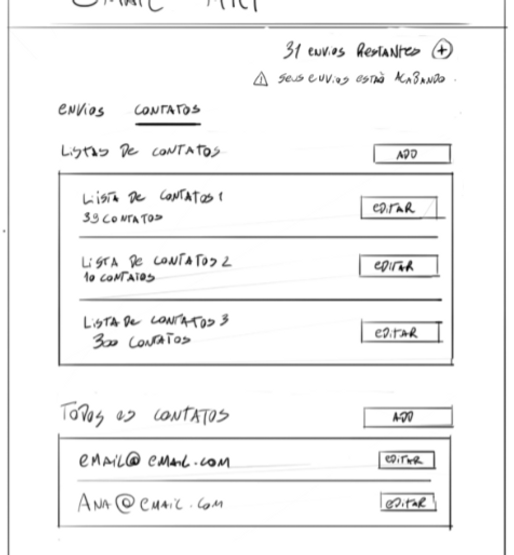 EMAIL
31 envios Restantes +
! seus envios estão acabando.
envios CONTATOS
Listas de contatos ADD
Lista de contatos 1
33 contatos
EDITAR
Lista de contatos 2
10 contatos
EDITAR
Lista de contatos 3
300 contatos
EDITAR
Todos os contatos ADD
email@email.com EDITAR
Ana@email.com EDITAR